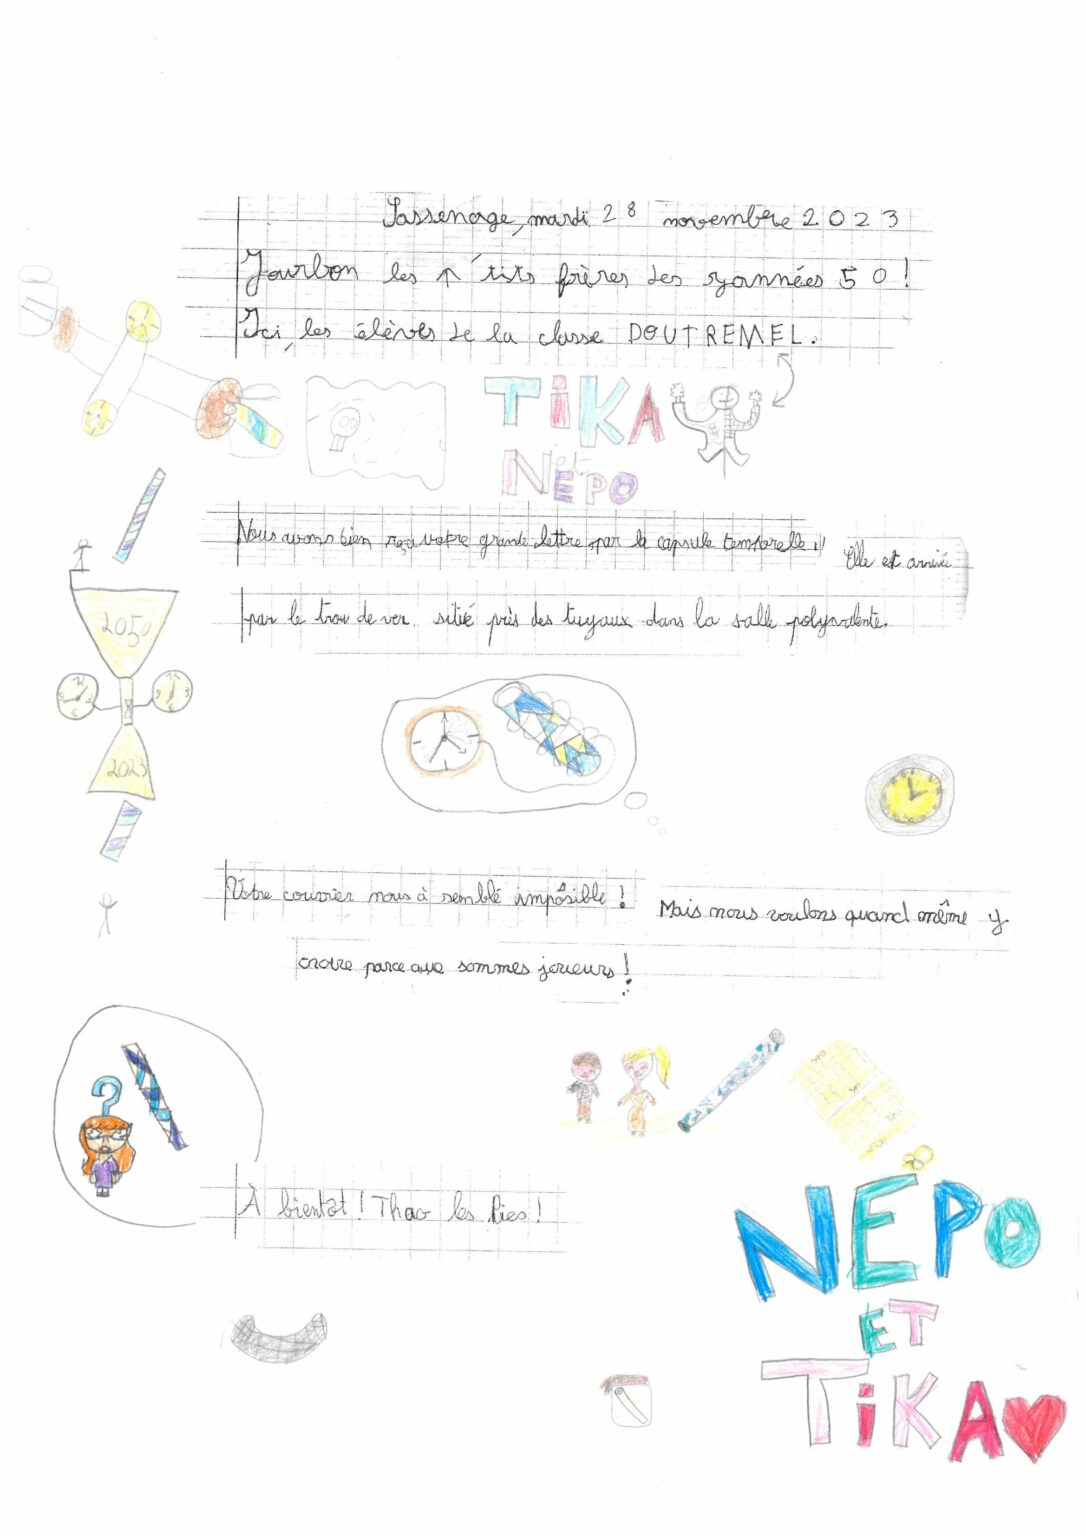 Sassenage, mardi 28 novembre 2023
Jourbon les p'tits frères des zannées 50!
Ici, les élèves de la classe DOUTREMEL.
TIKA
et
NEPO
Nous avons bien reçu votre grande lettre par la capsule temporelle!!
Elle est arrivé
par le trou de ver situé près des tuyaux dans la salle polyvalente.
2050
2023
Votre courrier nous à semblé impôsible!
Mais nous voulons quand même y
croire parce que sommes joueurs!
À bientôt! Thao les Pies!
NEPO
ET
TiKA